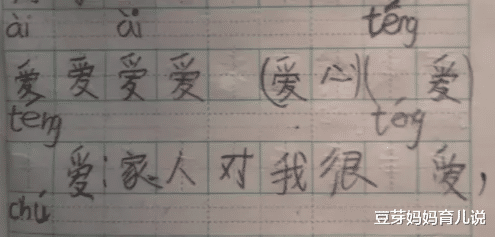 ài ài téng
爱 爱 爱 爱 (爱心)( 爱)
téng téng
爱:家人对我很 爱,
chú
豆芽妈妈育儿说